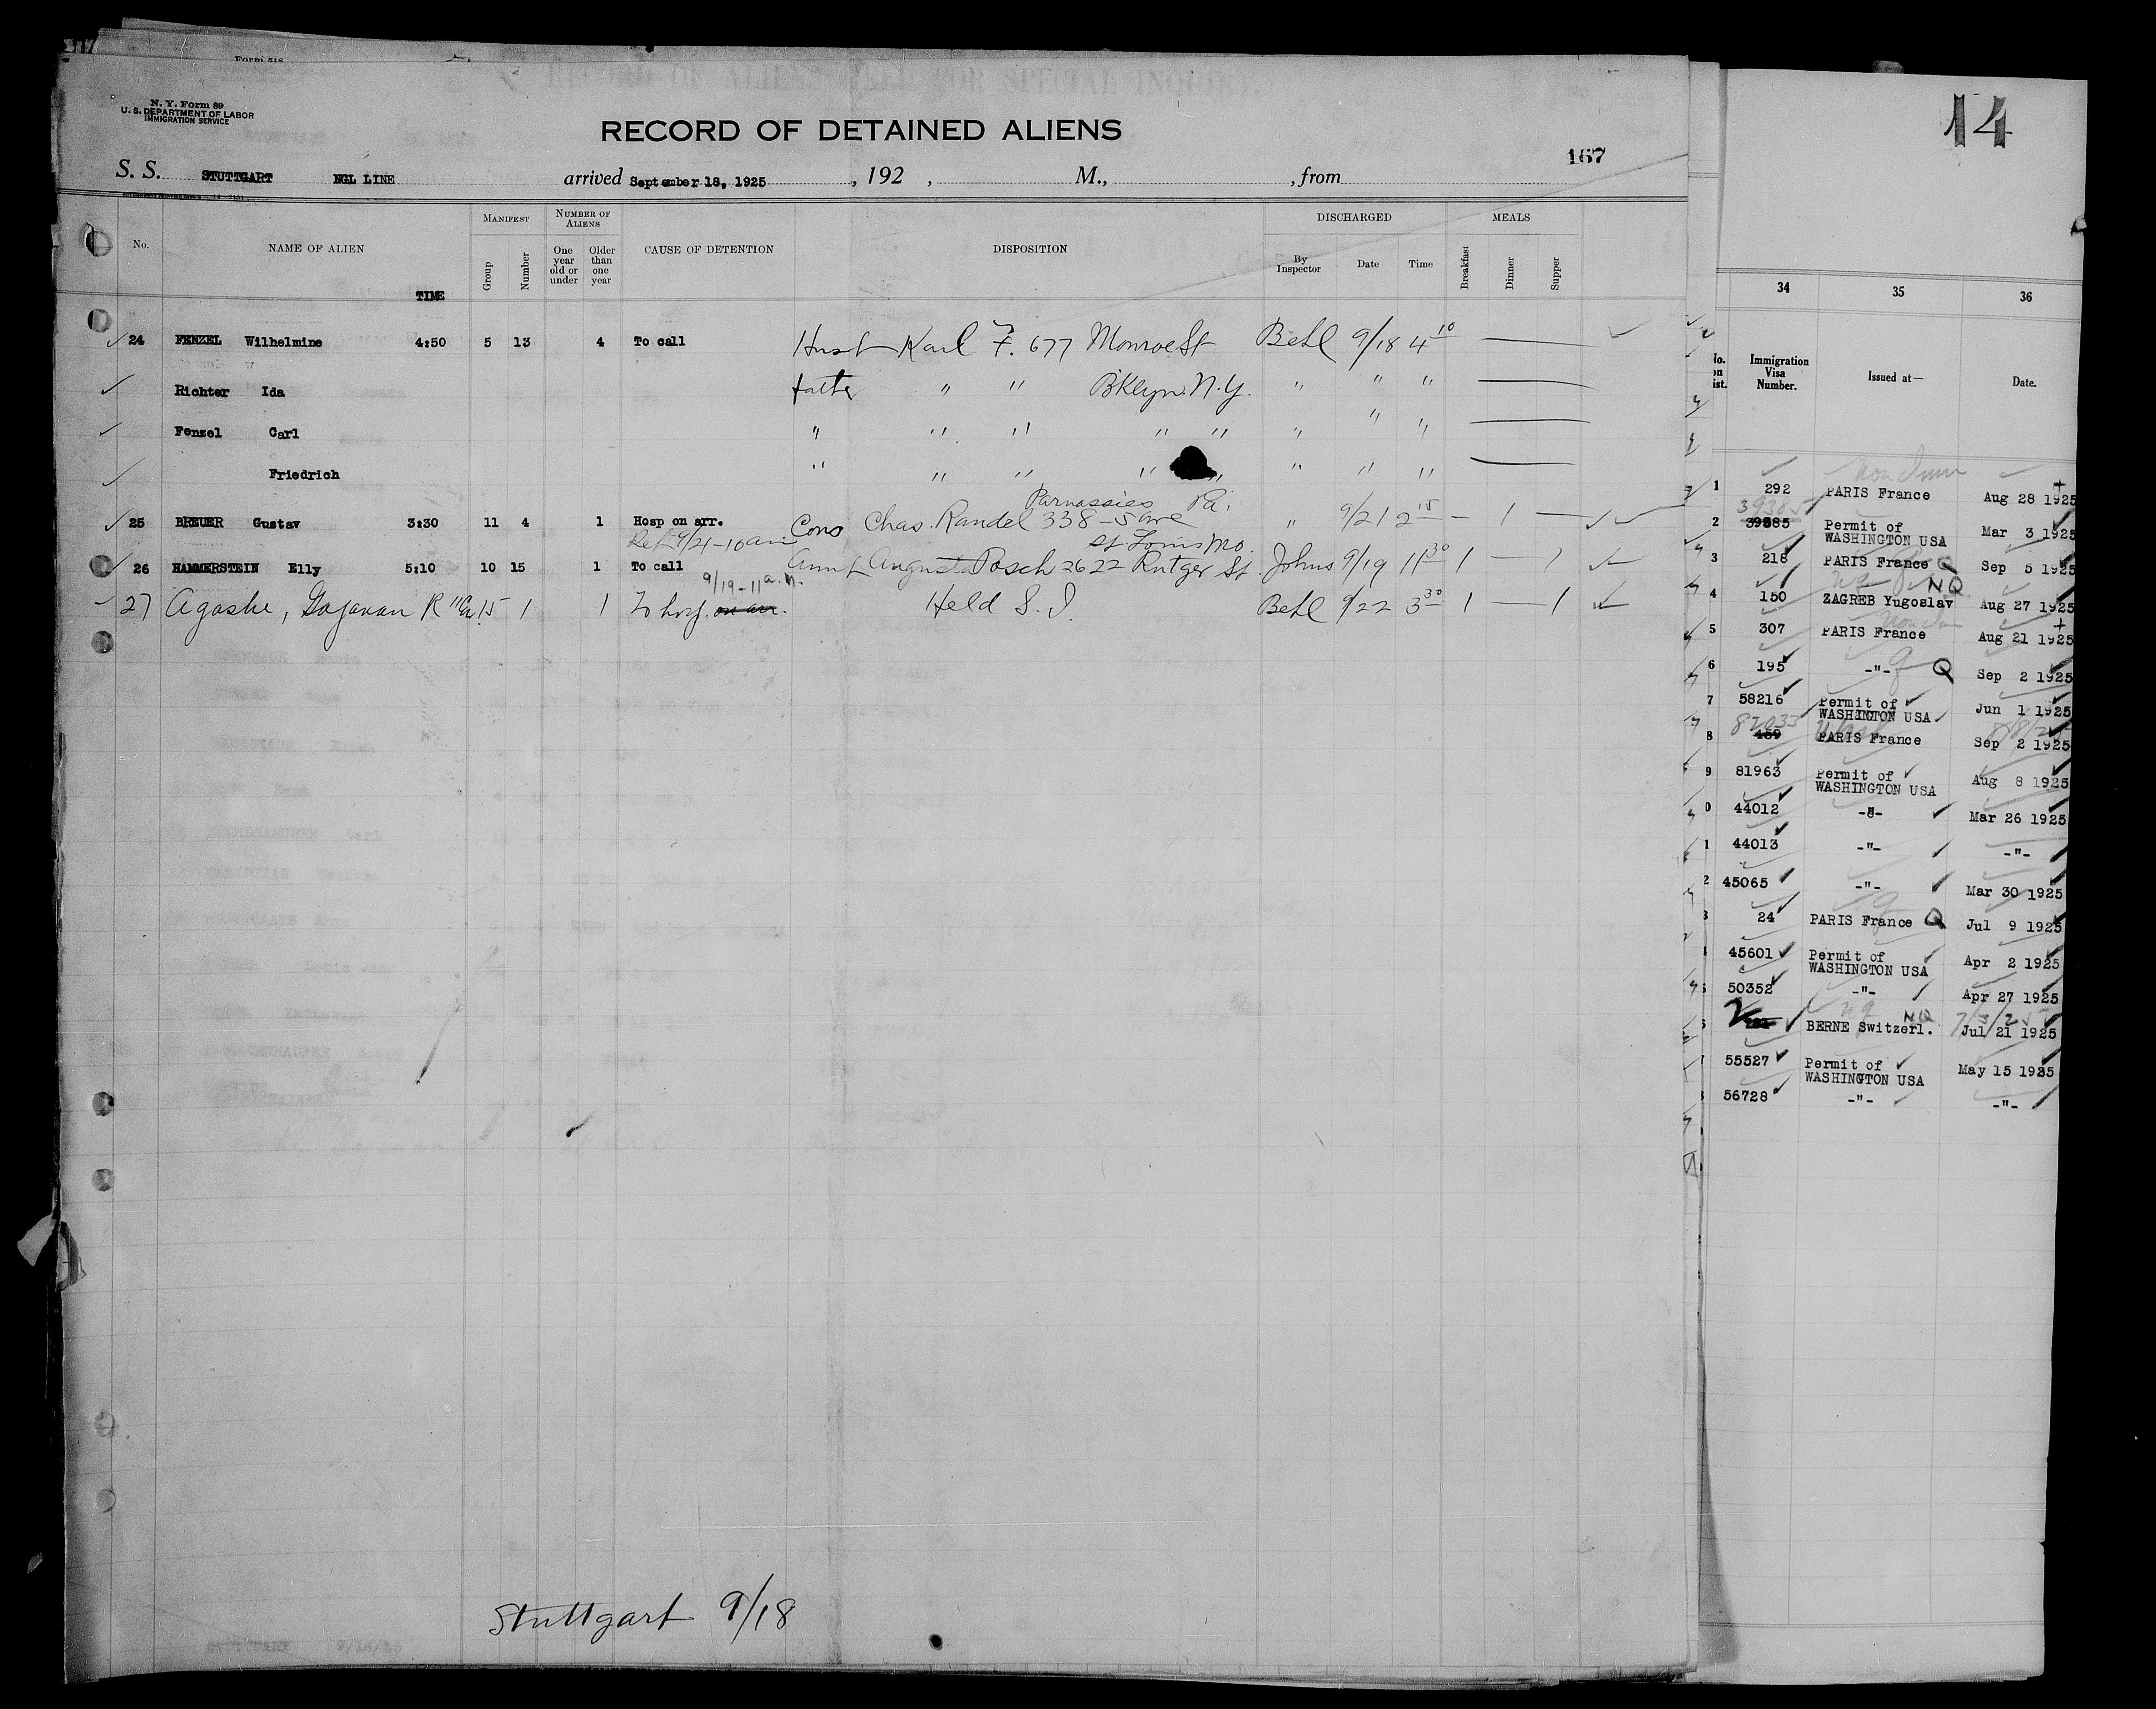 Form 518
N. Y. Form 89
U. S. DEPARTMENT OF LABOR
IMMIGRATION SERVICE
RECORD OF DETAINED ALIENS
167
S. S. STUTTGART NGL LINE arrived September 18, 1925, 192 , M., , from
No. NAME OF ALIEN TIME MANIFEST Group Number NUMBER OF ALIENS One year old or under Older than one year CAUSE OF DETENTION DISPOSITION DISCHARGED By Inspector Date Time MEALS Breakfast Dinner Supper
24 FENZEL Wilhelmine 4:50 5 13 4 To call Husb Karl F. 677 Monroe St 9/18 4 10
Richter Ida father " " BKlyn. N.Y. " " "
Fenzel Carl " " " " " " " "
Friedrich " " " " " " " "
Pa.
25 BREUER Gustav 3:30 11 4 1 Hosp on arr. Cons Chas. Randel 338 - 5 ave " 9/21 2 15 1
9/21-10am St Louis Mo.
26 HAMMERSTEIN Elly 5:10 10 15 1 To call Aunt Augusta Posch 2622 Rutger St. Johns 9/19 11 30 1 1
9/19-11 a.m.
27 Agashe, Gajanan R 15 1 1 To hosp. on arr. Held S. I. 9/22 3 30 1 1
Stuttgart 9/18
14
34 35 36
Immigration Visa Number. Issued at— Date.
1 292 PARIS France Aug 28 1925
39385
2 39385 Permit of WASHINGTON USA Mar 3 1925
3 218 PARIS France Sep 5 1925
NQ
4 150 ZAGREB Yugoslav Aug 27 1925
5 307 PARIS France Aug 21 1925
6 195 -"- Q Sep 2 1925
7 58216 Permit of WASHINGTON USA Jun 1 1925
82033
8 459 PARIS France Sep 2 1925
9 81963 Permit of WASHINGTON USA Aug 8 1925
0 44012 -"- Mar 26 1925
1 44013 -"- -"-
2 45065 -"- Mar 30 1925
3 24 PARIS France Q Jul 9 1925
45601 Permit of WASHINGTON USA Apr 2 1925
5 50352 -"- Apr 27 1925
NQ 7/3/25
6 BERNE Switzerl. Jul 21 1925
55527 Permit of WASHINGTON USA May 15 1925
56728 -"- -"-